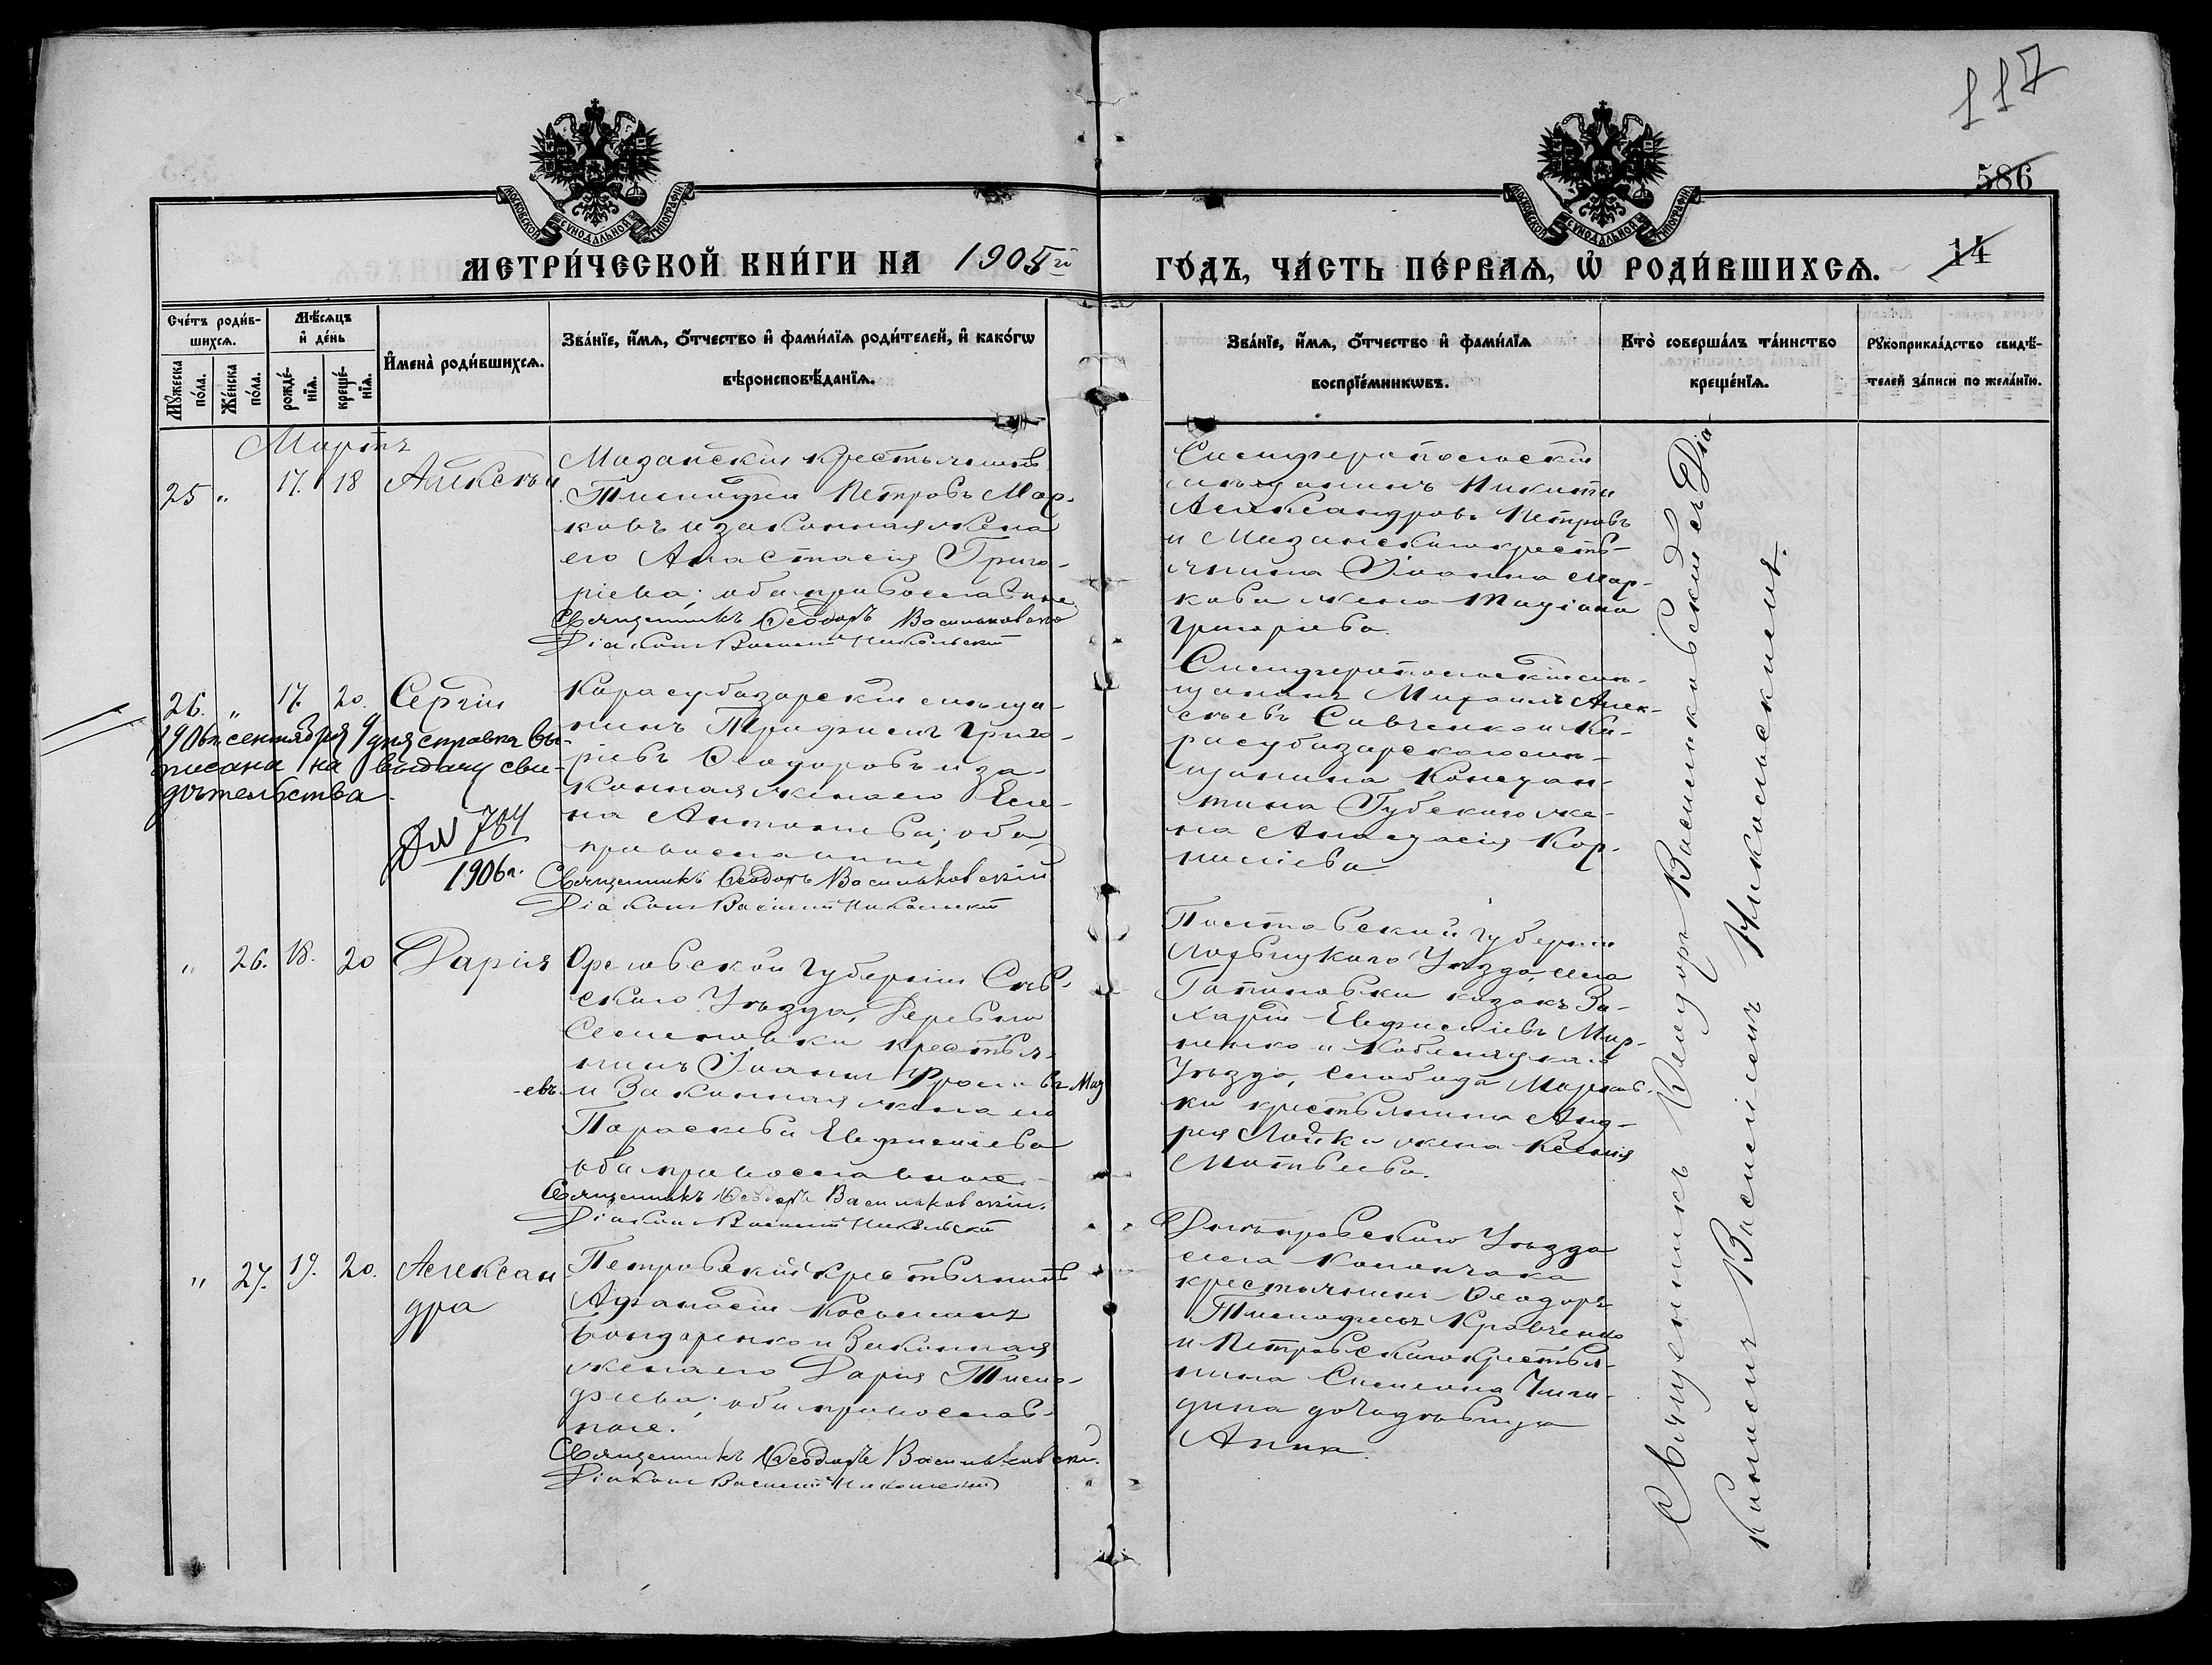 117
586
14
МОСКОВСКОЙ СУНОДАЛЬНОЙ ТИПОГРАФІИ
МОСКОВСКОЙ СУНОДАЛЬНОЙ ТИПОГРАФІИ
МЕТРИ́ЧЕСКОЙ КНИ́ГИ НА 1905й
ГО́ДЪ, ЧА́СТЬ ПЕ́РВАѦ, Ѡ҆ РОДИ́ВШИХСѦ.
Сче́тъ роди́в-
шихсѧ.
Мꙋ́жеска по́ла.
Же́нска по́ла.
Мѣ́сѧцъ
и҆ де́нь
рожде́-
нїѧ.
креще́-
нїѧ.
И҆мена̀ роди́вшихсѧ.
Зва́нїе, и҆́мѧ, ѻ҆́тчество и҆ фами́лїѧ роди́телей, и҆ како́гѡ
вѣроисповѣ́данїѧ.
Зва́нїе, и҆́мѧ, ѻ҆́тчество и҆ фами́лїѧ
воспрїе́мникѡвъ.
Кто̀ соверша́лъ та́инство
креще́нїѧ.
Рꙋкоприкла́дство свидѣ́-
телей за́писи по жела́нїю.
Мартъ
25 " 17. 18 Алексѣй
Мазанскій крестьянинъ
Тимофей Петровъ Мар-
ковъ и законная жена
его Анастасія Григо-
ріева; оба православные
Священникъ Ѳеодоръ Васильковскій
Діаконъ Василій Никольскій
Симферопольскій
мѣщанинъ Никита
Александровъ Петровъ
и Мазанскаго кресть-
янина Іоанна Мар-
кова жена Татіана
Григорьева.
26. " 17. 20. Сергій
1906г. сентября 9 дня справка вы-
писана на выдачу сви-
дѣтельства.
№ 784
1906г.
Карасубазарскій мѣща-
нинъ Трифонъ Григо-
рьевъ Ѳеодоровъ и за-
конная жена его Еле-
на Антоньева; оба
православные
Священникъ Ѳеодоръ Васильковскій
Діаконъ Василій Никольскій
Симферопольскій мѣ-
щанинъ Михаилъ Алек-
сѣевъ Савченко и Ка-
расубазарскаго мѣ-
щанина Констан-
тина Губскаго же-
на Анастасія Кор-
ниліева
" 26. 18. 20 Дарія
Орловской Губерніи Сѣв-
скаго Уѣзда, Деревни
Семеновки крестья-
нинъ Іоаннъ Маз
-евъ и Законная жена его
Параскева Евфиміева
оба православные.
Священникъ Ѳеодоръ Васильковскій.
Діаконъ Василій Никольскій
Полтавской Губерніи
Лохвицкаго Уѣзда, села
казакъ За-
харій Евфиміевъ Мир-
ненко и Кобеляцкаго
Уѣзда, слобода Марков-
ки крестьянина Анд-
рея Лойки жена Ксенія
Матвеева.
" 27. 19. 20. Алексан
дра
Петровскій крестьянинъ
Афанасій Косьминъ
Бондаренко и Законная
жена его Дарія Тимо-
феева; оба православ-
ные.
Священникъ Ѳеодоръ Васильковскій.
Діаконъ Василій Никольскій
Днѣпровскаго Уѣзда
села Каланчака
крестьянинъ Ѳеодоръ
Тимофеевъ Кравченко
и Петровскаго крестья-
нина Симеона Чиги-
дина дочь дѣвица
Анна.
Священникъ Ѳеодоръ Васильковскій съ Діа-
кономъ Василіемъ Никольскимъ.